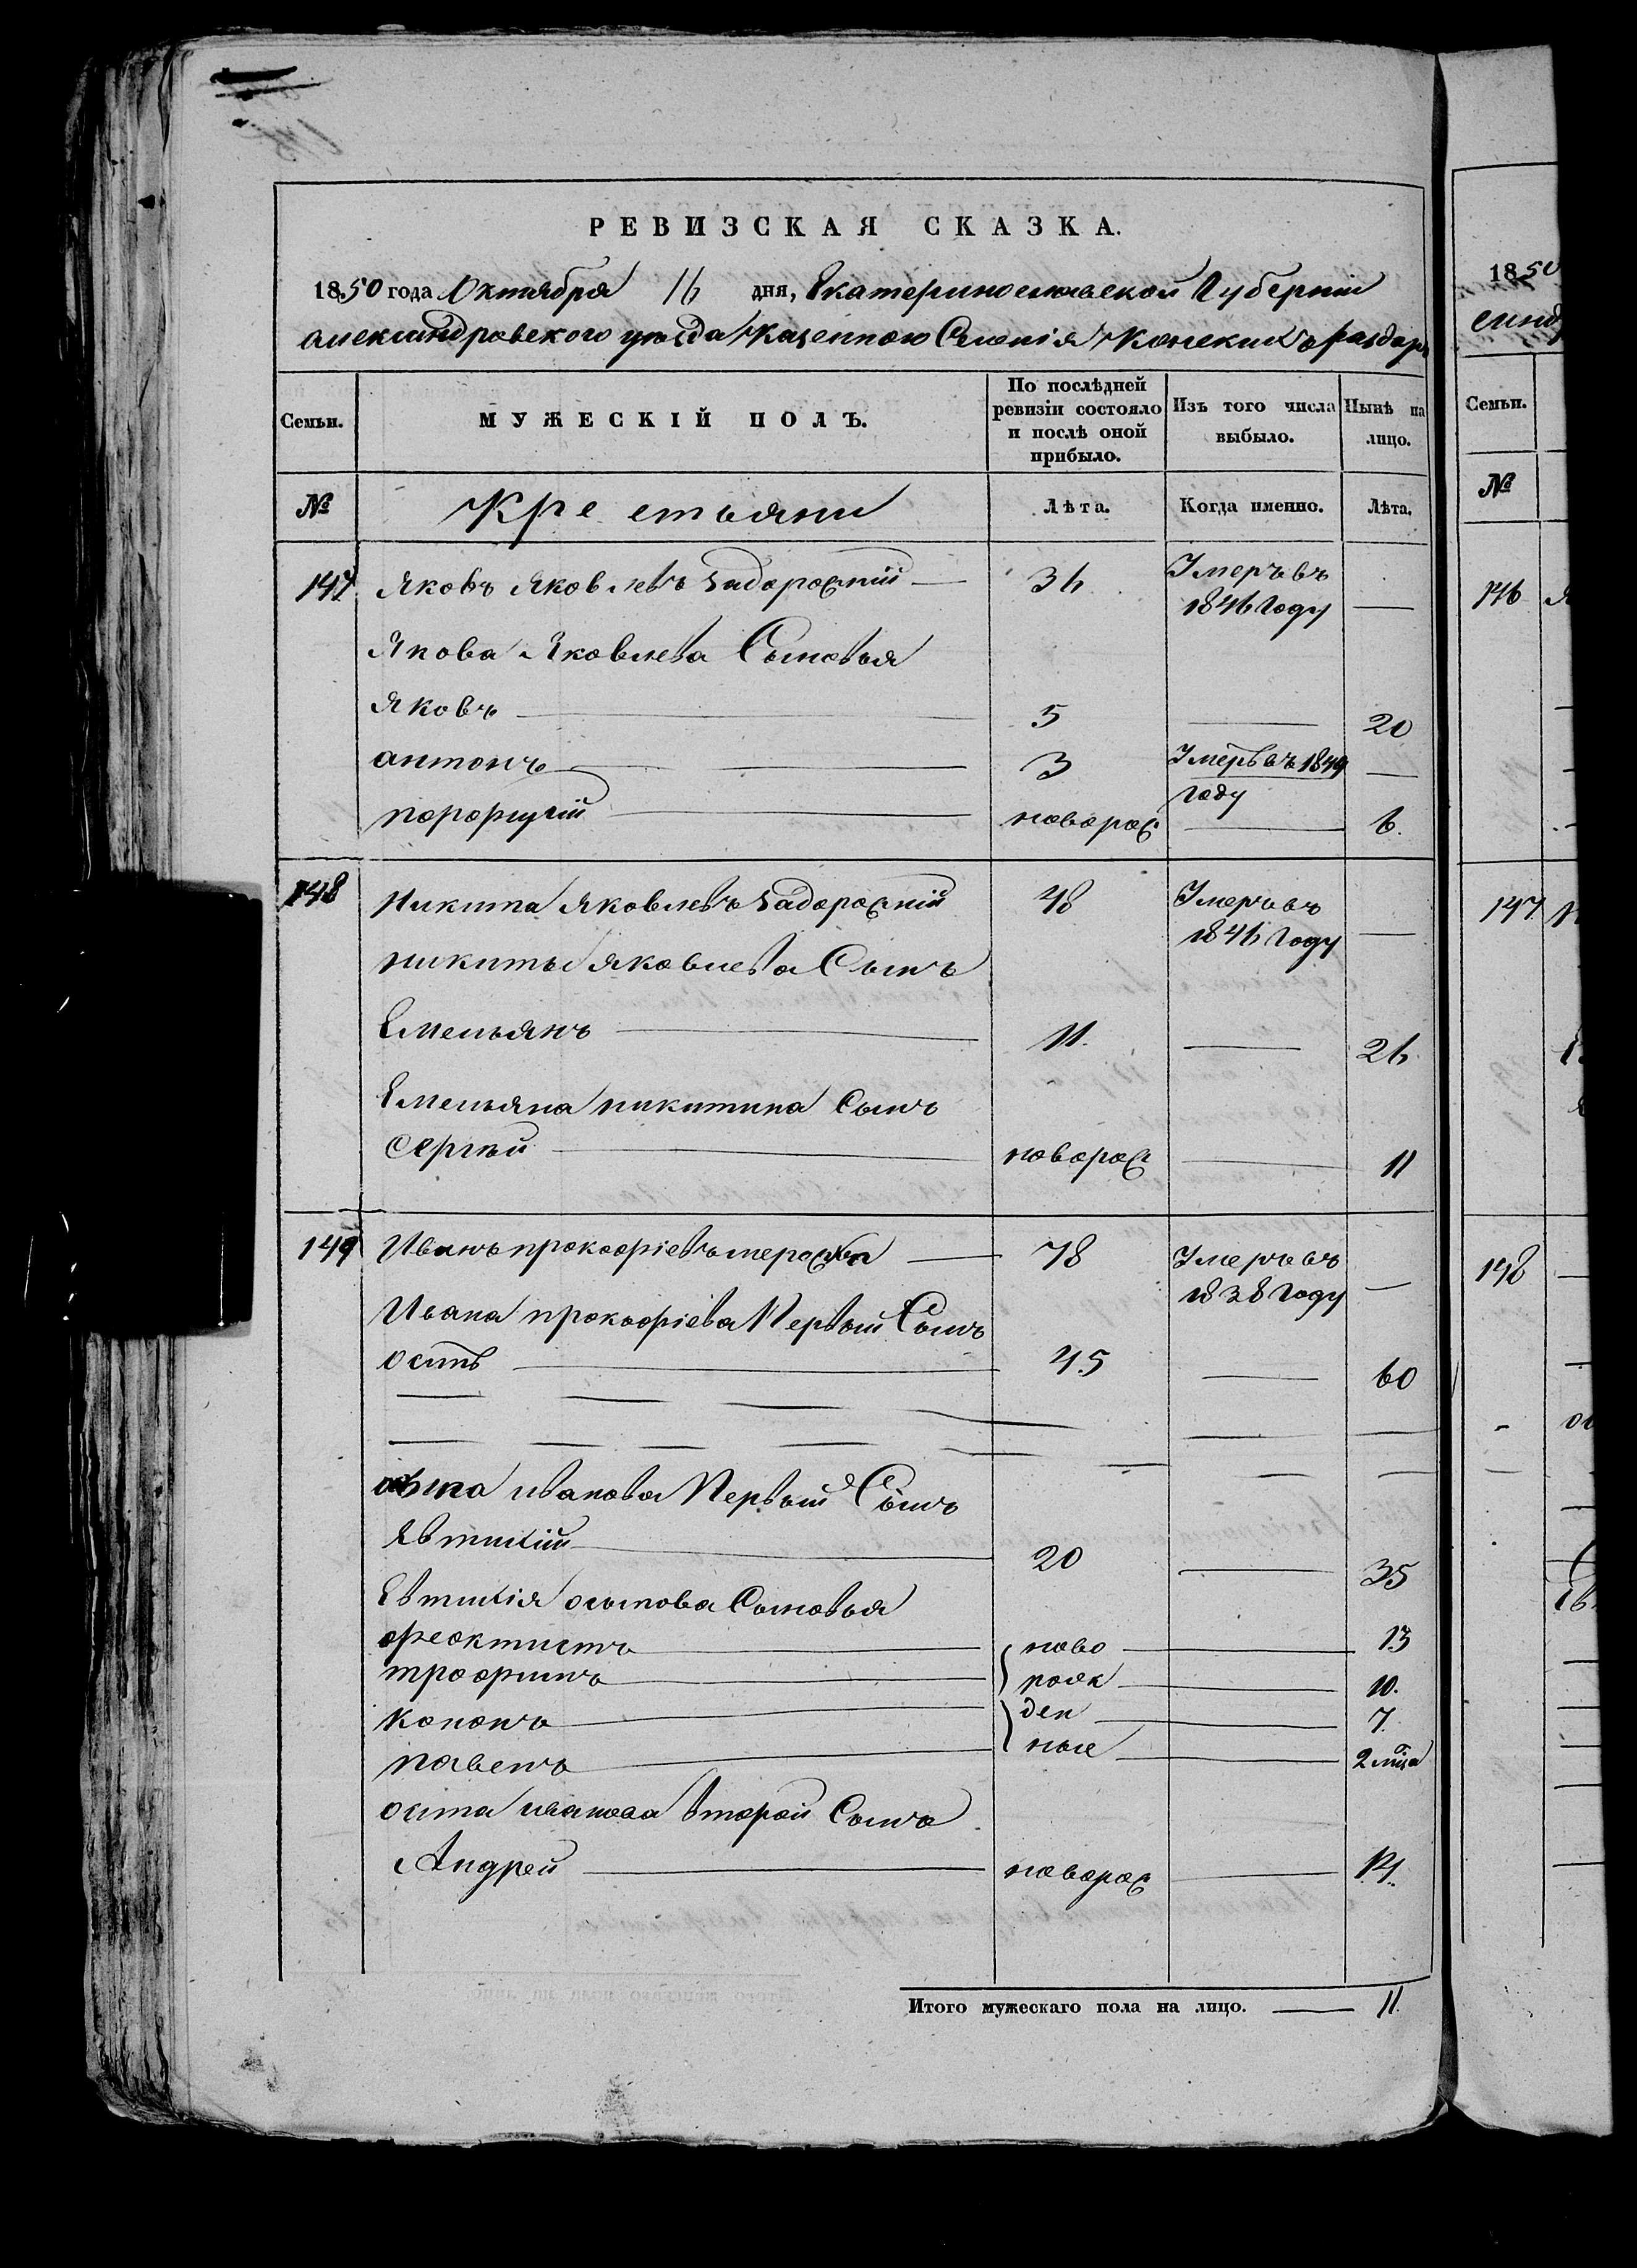 РЕВИЗСКАЯ СКАЗКА.
1850 года Октября 16 дня, Екатеринославской Губернии
александровского уѣзда Казенного Селенія Конскихъ раздоръ
Семьи. МУЖЕСКІЙ ПОЛЪ. По послѣдней ревизіи состояло и послѣ оной прибыло. Изъ того числа выбыло. Нынѣ на лицо.
№ Крестьяни Лѣта. Когда именно. Лѣта.
147 Яковъ Яковлевъ Задорожній 36 Умеръ въ 1846 Году —
Якова Яковлева Сыновья
Яковъ 5 — 20
антонъ 3 Умеръ въ 1849 году —
порфирій новорож — 6.
148 Никита Яковлевъ Задорожній 48 Умеръ въ 1846 Году —
никиты яковлева Сынъ
Емельянъ 11. — 26
Емельяна никитина Сынъ
Сергѣй новорож — 11
149 Иванъ прокофіевъ 78 Умеръ въ 1838 Году —
Ивана прокофіева Первый Сынъ
осипъ 45 — 60
осипа иванова Первый Сынъ
Явтихій 20 — 35
Евтихія осипова Сыновья
феоктистъ ново — 13
трофимъ рож — 10.
Кононъ ден — 7.
павелъ ные — 2 мѣца
осипа иванова второй Сынъ
Андрей новорож — 14.
Итого мужескаго пола на лицо. — 11.
1850
Семьи.
№
146
147
148